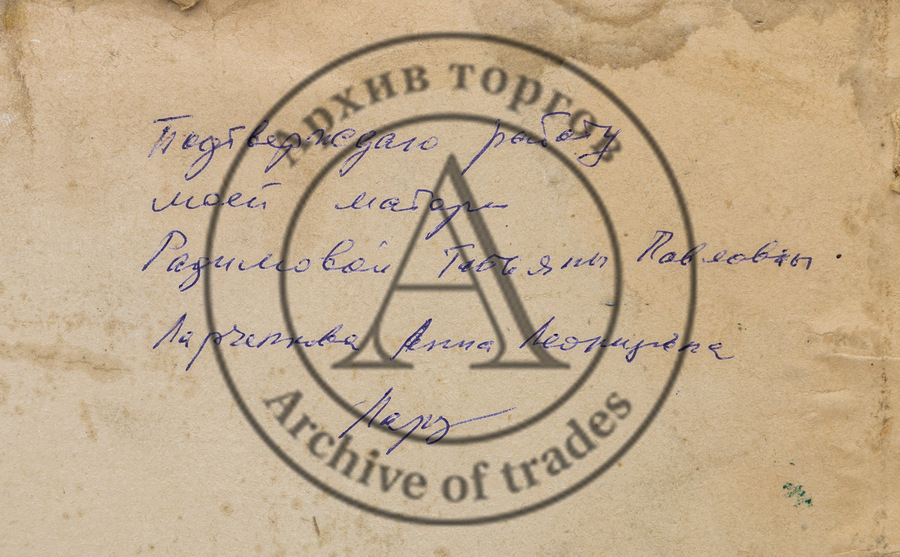 Архив торгов
Подтверждаю работу
моей матери
Радимовой Татьяны Павловны.
Ларченкова Анна Леонидовна
Archive of trades